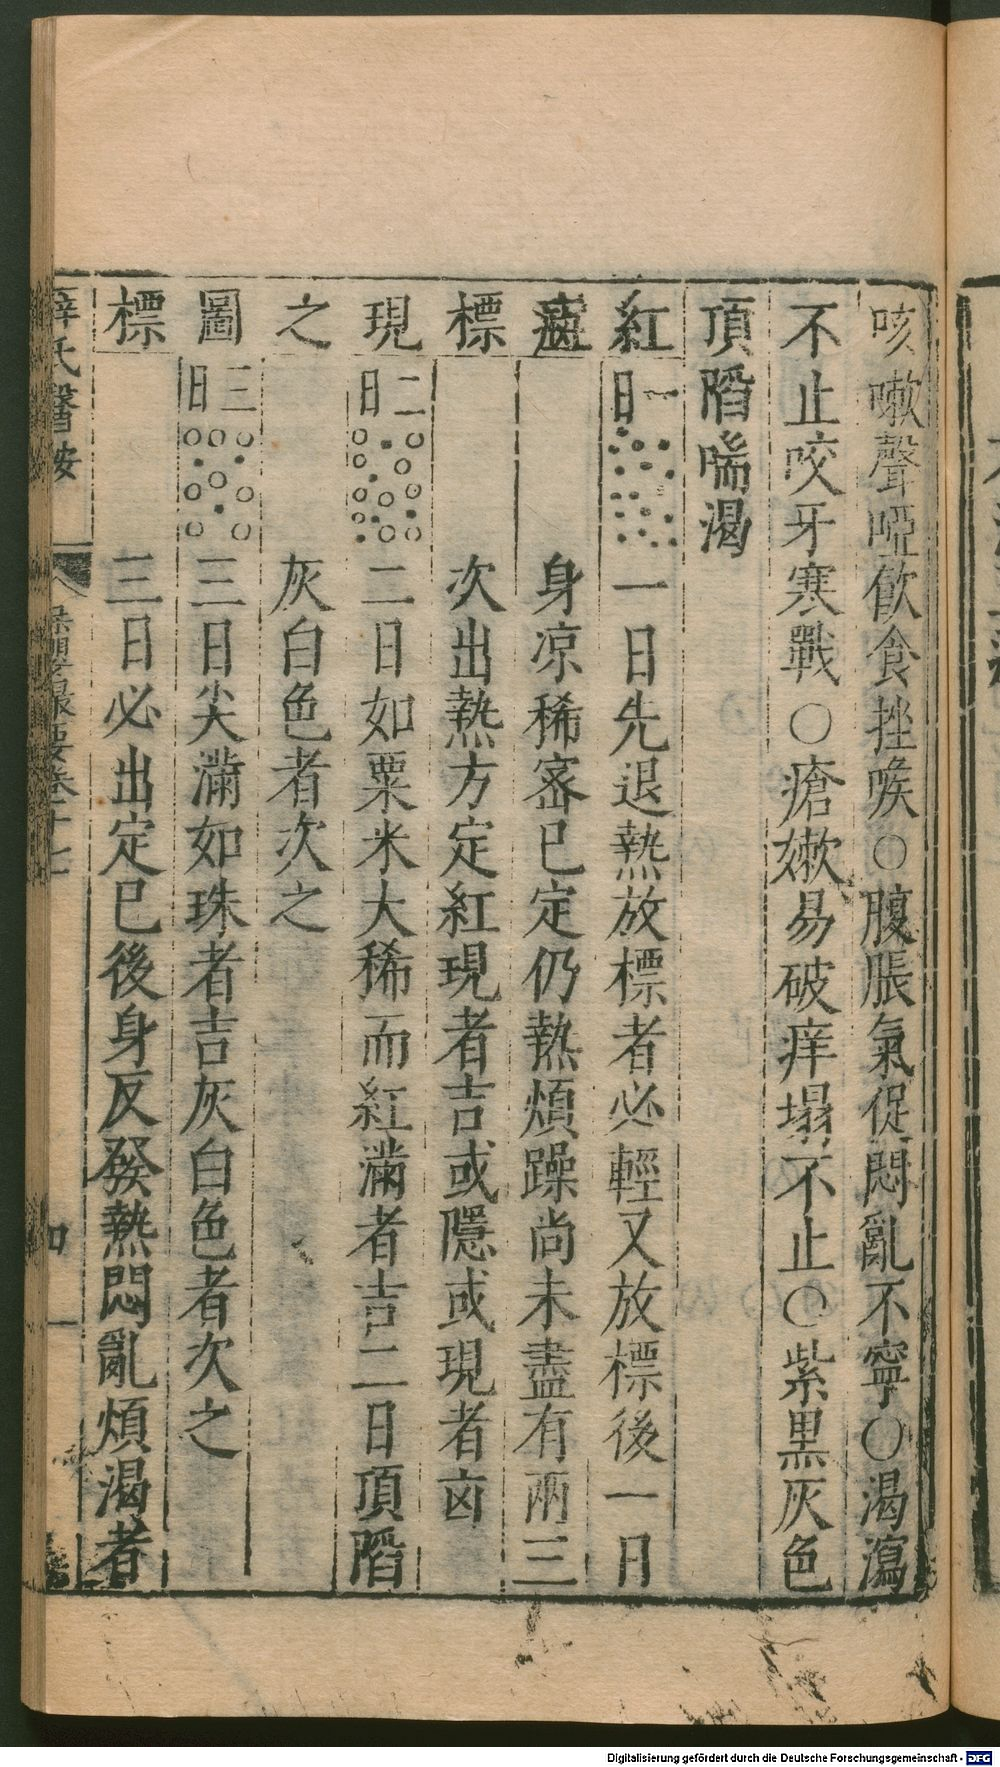 咳嗽聲啞飲食挫喉○腹脹氣促悶亂不寧○渴瀉
不止咬牙寒戰○瘡嫰易破痒塌不止○紫黒灰色
頂䧟喘渴
紅 一日 一日先退熱放標者必輕又放標後一日
身凉稀宻已定仍熱煩躁尚未盡有兩三
標 次出熱方定紅現者吉或隱或現者凶
現 二日 二日如粟米大稀而紅滿者吉二日頂䧟
之 灰白色者次之
圖 三日 三日尖滿如珠者吉灰白色者次之
標 三日必出定巳後身反發熱悶亂煩渴者
薛氏醫按 保嬰撮要卷十七 四
Digitalisierung gefördert durch die Deutsche Forschungsgemeinschaft - DFG